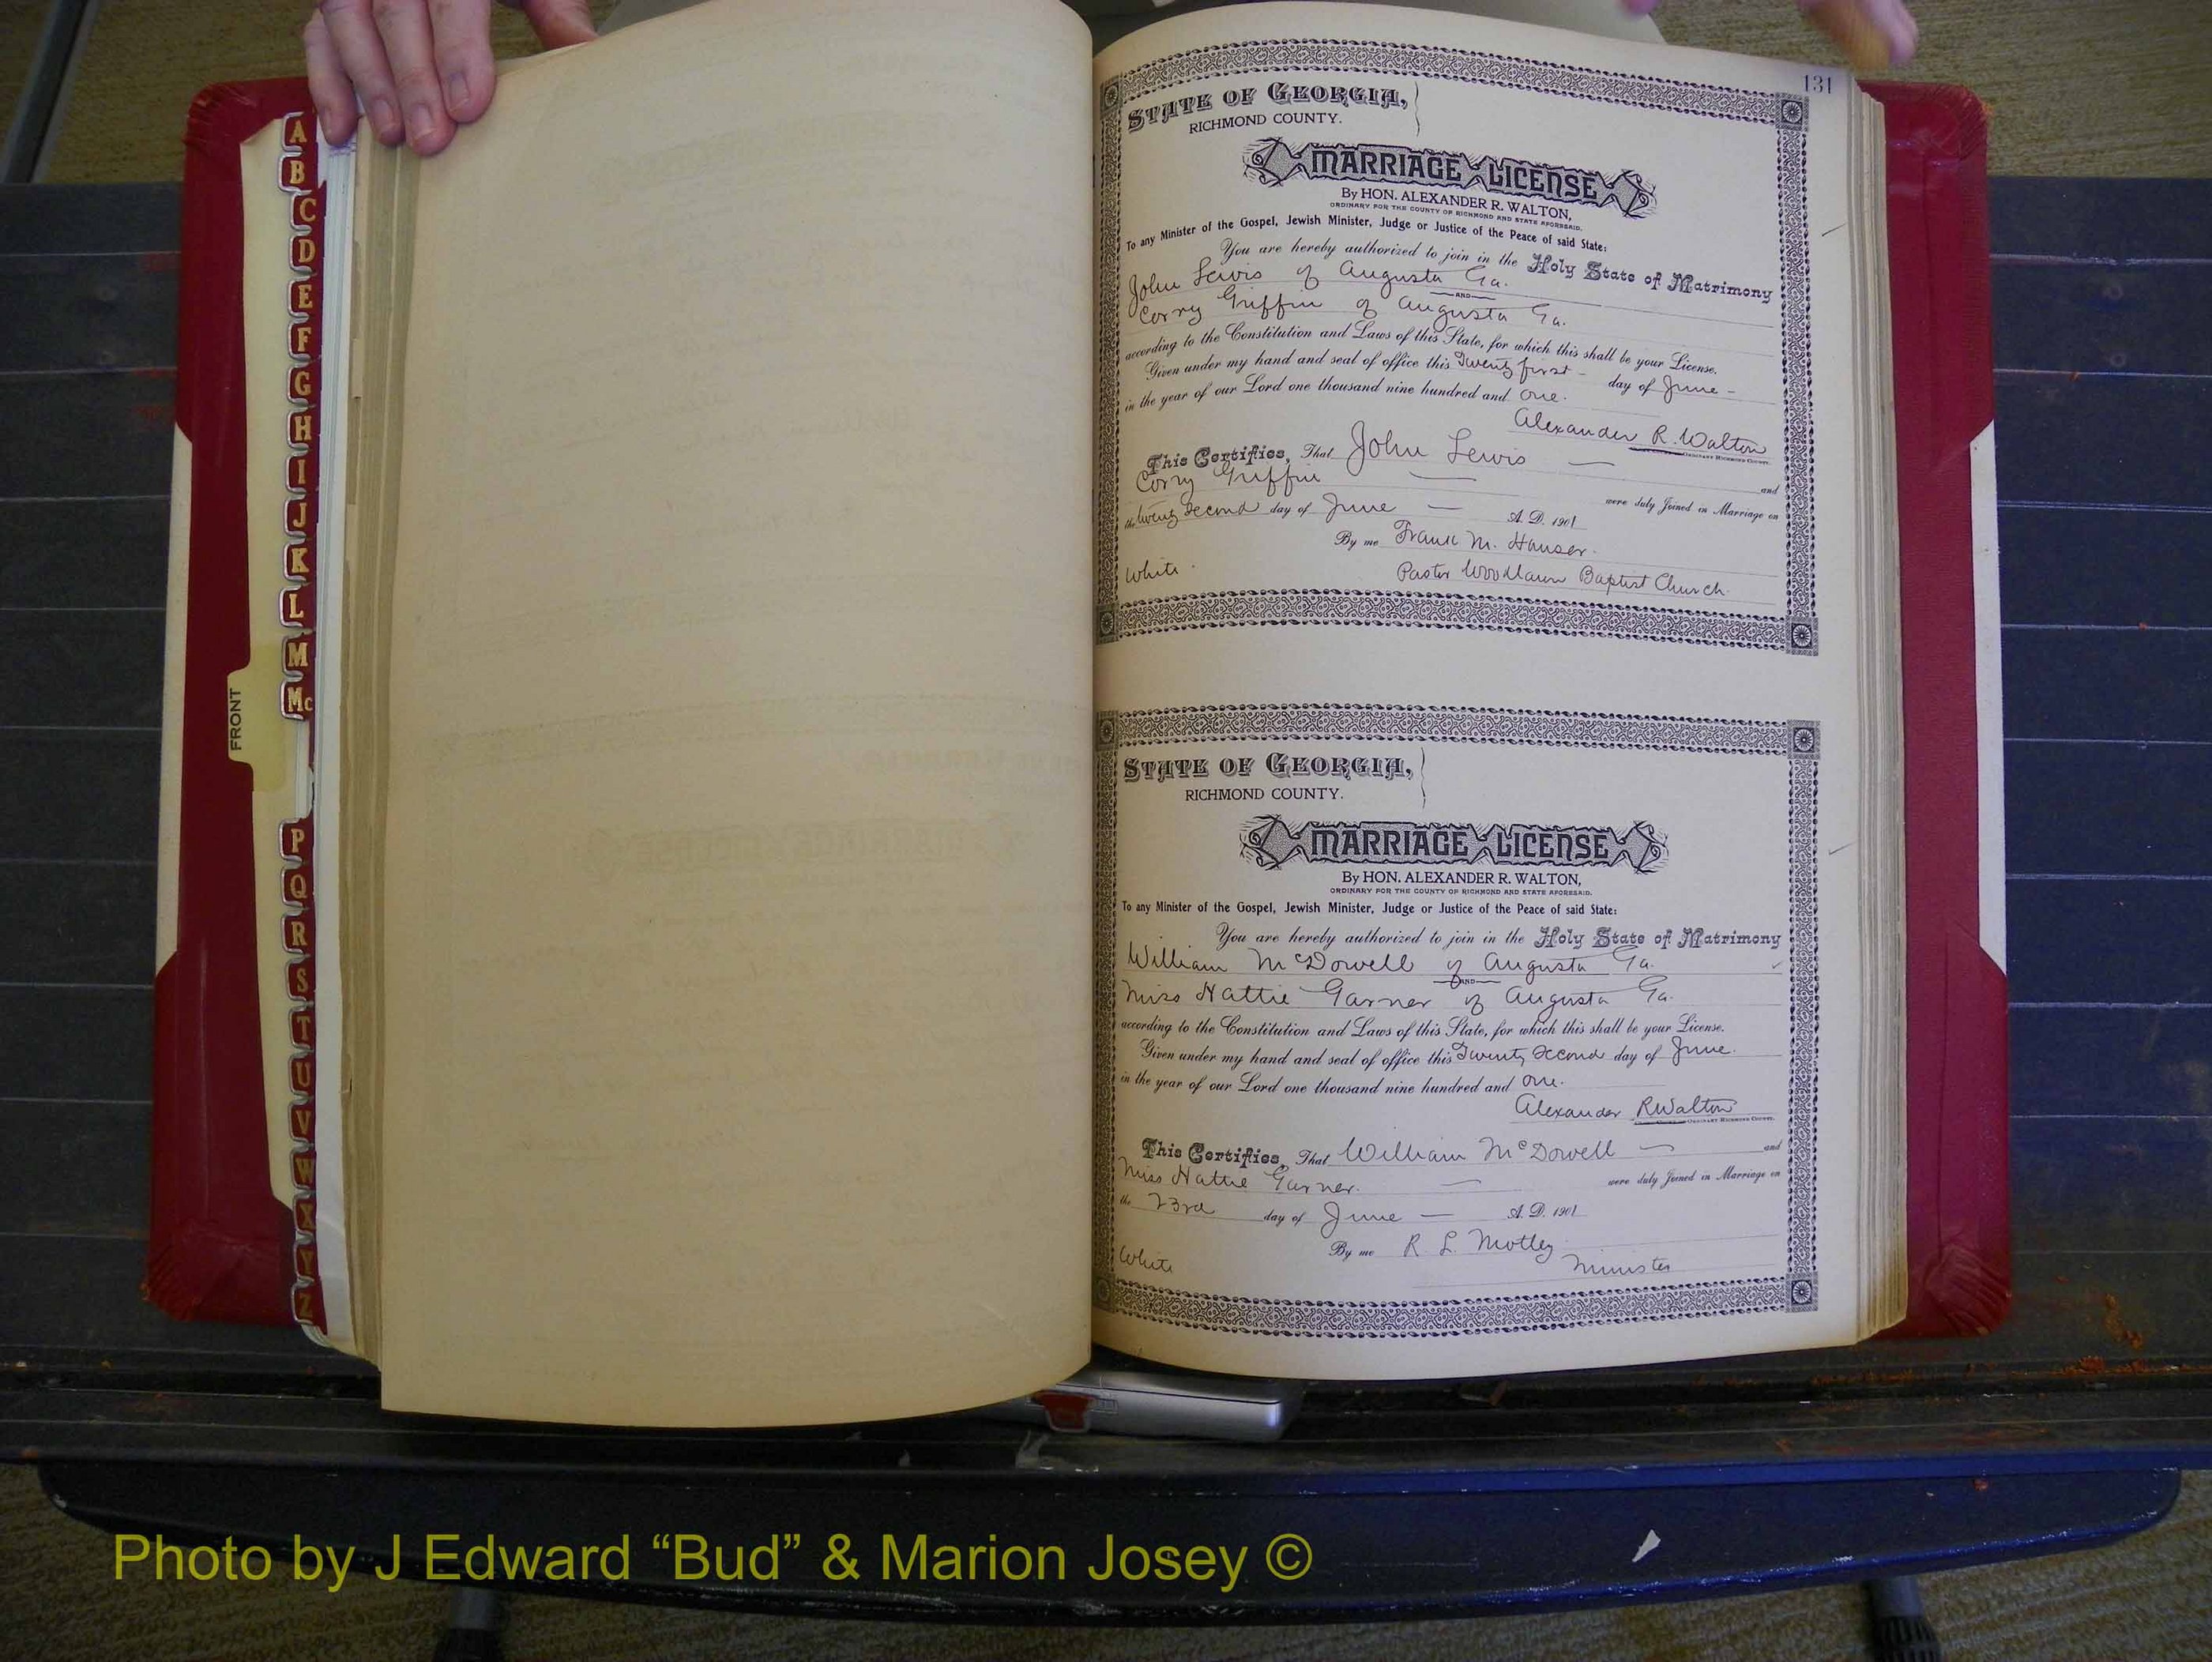 A
B
C
D
E
F
G
H
I
J
K
L
M
Mc
FRONT
P
Q
R
S
T
U
V
W
X
Y
Z
131
STATE OF GEORGIA,
RICHMOND COUNTY.
MARRIAGE LICENSE
By HON. ALEXANDER R. WALTON,
ORDINARY FOR THE COUNTY OF RICHMOND AND STATE AFORESAID.
To any Minister of the Gospel, Jewish Minister, Judge or Justice of the Peace of said State:
You are hereby authorized to join in the Holy State of Matrimony
John Lewis of Augusta Ga.
AND
Corry Griffin of Augusta Ga.
according to the Constitution and Laws of this State, for which this shall be your License.
Given under my hand and seal of office this Twenty first - day of June -
in the year of our Lord one thousand nine hundred and one.
Alexander R. Walton
ORDINARY RICHMOND COUNTY.
This Certifies, That John Lewis — and
Corry Griffin — were duly Joined in Marriage on
the twenty second day of June — A. D. 1901
By me Frank M. Hauser.
White. Pastor Woodlawn Baptist Church.
STATE OF GEORGIA,
RICHMOND COUNTY.
MARRIAGE LICENSE
By HON. ALEXANDER R. WALTON,
ORDINARY FOR THE COUNTY OF RICHMOND AND STATE AFORESAID.
To any Minister of the Gospel, Jewish Minister, Judge or Justice of the Peace of said State:
You are hereby authorized to join in the Holy State of Matrimony
William McDowell of Augusta Ga.
AND
Miss Hattie Garner of Augusta Ga.
according to the Constitution and Laws of this State, for which this shall be your License.
Given under my hand and seal of office this Twenty Second day of June.
in the year of our Lord one thousand nine hundred and one.
Alexander R Walton
ORDINARY RICHMOND COUNTY.
This Certifies, That William McDowell — and
Miss Hattie Garner. — were duly Joined in Marriage on
the 23rd day of June — A. D. 1901
By me R L. Motley
White Minister
Photo by J Edward “Bud” & Marion Josey ©